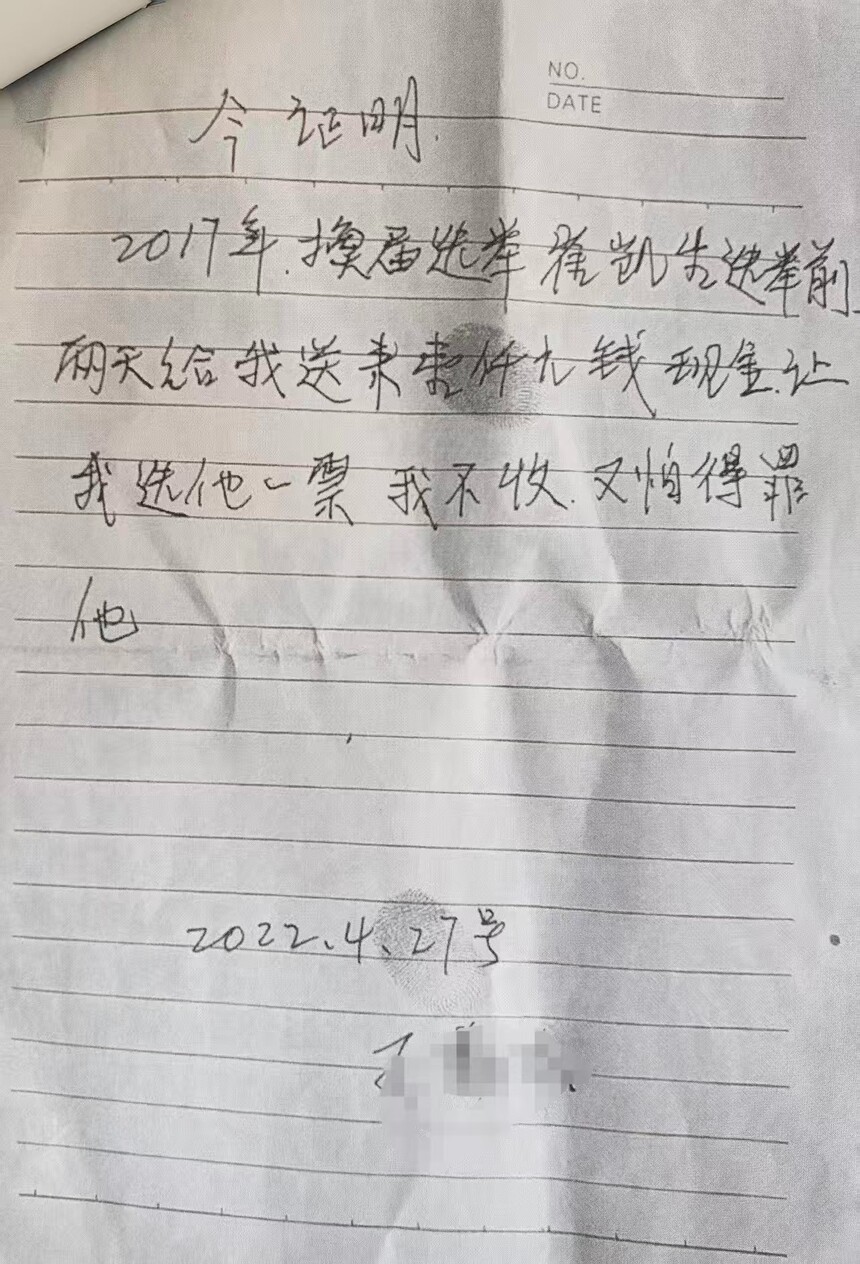 NO.
DATE
今证明.
2017年.换届选举崔凯生选举前
两天给我送来壹仟九钱现金.让
我选他一票 我不收.又怕得罪
他
2022.4.27号